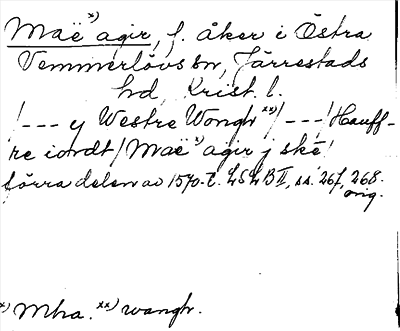 Maë x) agir, f. åker i Östra
Vemmerlövs sn, Järrestads
hd, Krist. l.
/--- y Westre Wongh xx)/---/ Hauff-
re iordt/ Maë x) agir j ské/
förra delen av 1570-t. LSLB II, ss. 267, 268.
orig.
x) Mha. xx) wangh.